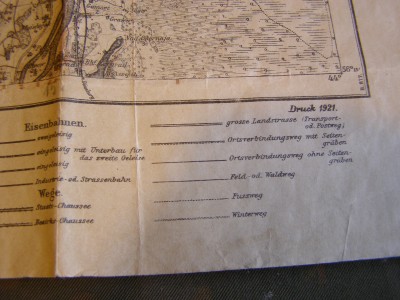 Druck 1921.
Eisenbahnen.
zweigleisig
eingleisig mit Unterbau für
das zweite Geleise
eingleisig
Industrie- od. Strassenbahn
Wege.
Staats-Chaussee
Bezirks-Chaussee
grosse Landstrasse (Transport-
od. Postweg)
Ortsverbindungsweg mit Seiten-
gräben
Ortsverbindungsweg ohne Seiten-
gräben
Feld- od. Waldweg
Fussweg
Winterweg